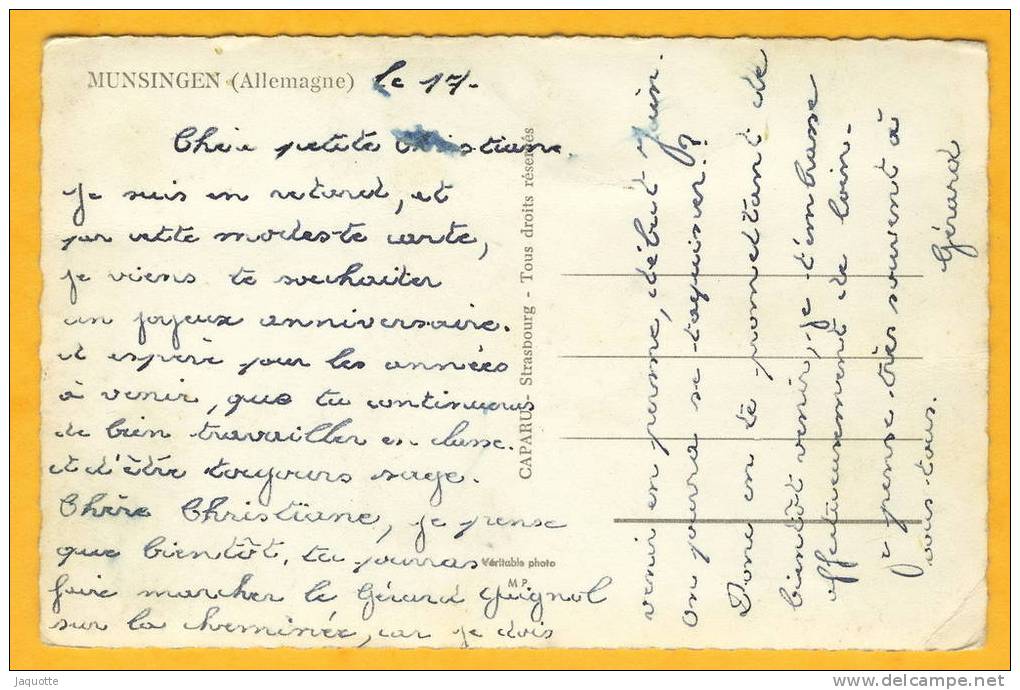 MUNSINGEN (Allemagne) le 17-
Chère petite Christiane,
Je suis en retard, et
par cette modeste carte,
je viens te souhaiter
un joyeux anniversaire.
et espère pour les années
à venir, que tu continueras
de bien travailler en classe.
et d'être toujours sage.
Chère Christïane, je pense
que bientôt, tu pourras
faire marcher le Gérard guignol
sur la cheminée, car je dois
venir en perme, début Juin.
On pourra se taquiner !?
Donc en te promettant de
bientôt venir, je t'embrasse
affectueusement de loin-
je pense très souvent à
vous tous.
Gérard
CAPARUS - Strasbourg - Tous droits réservés
Véritable photo
M P.
Jaquotte
www.delcampe.net